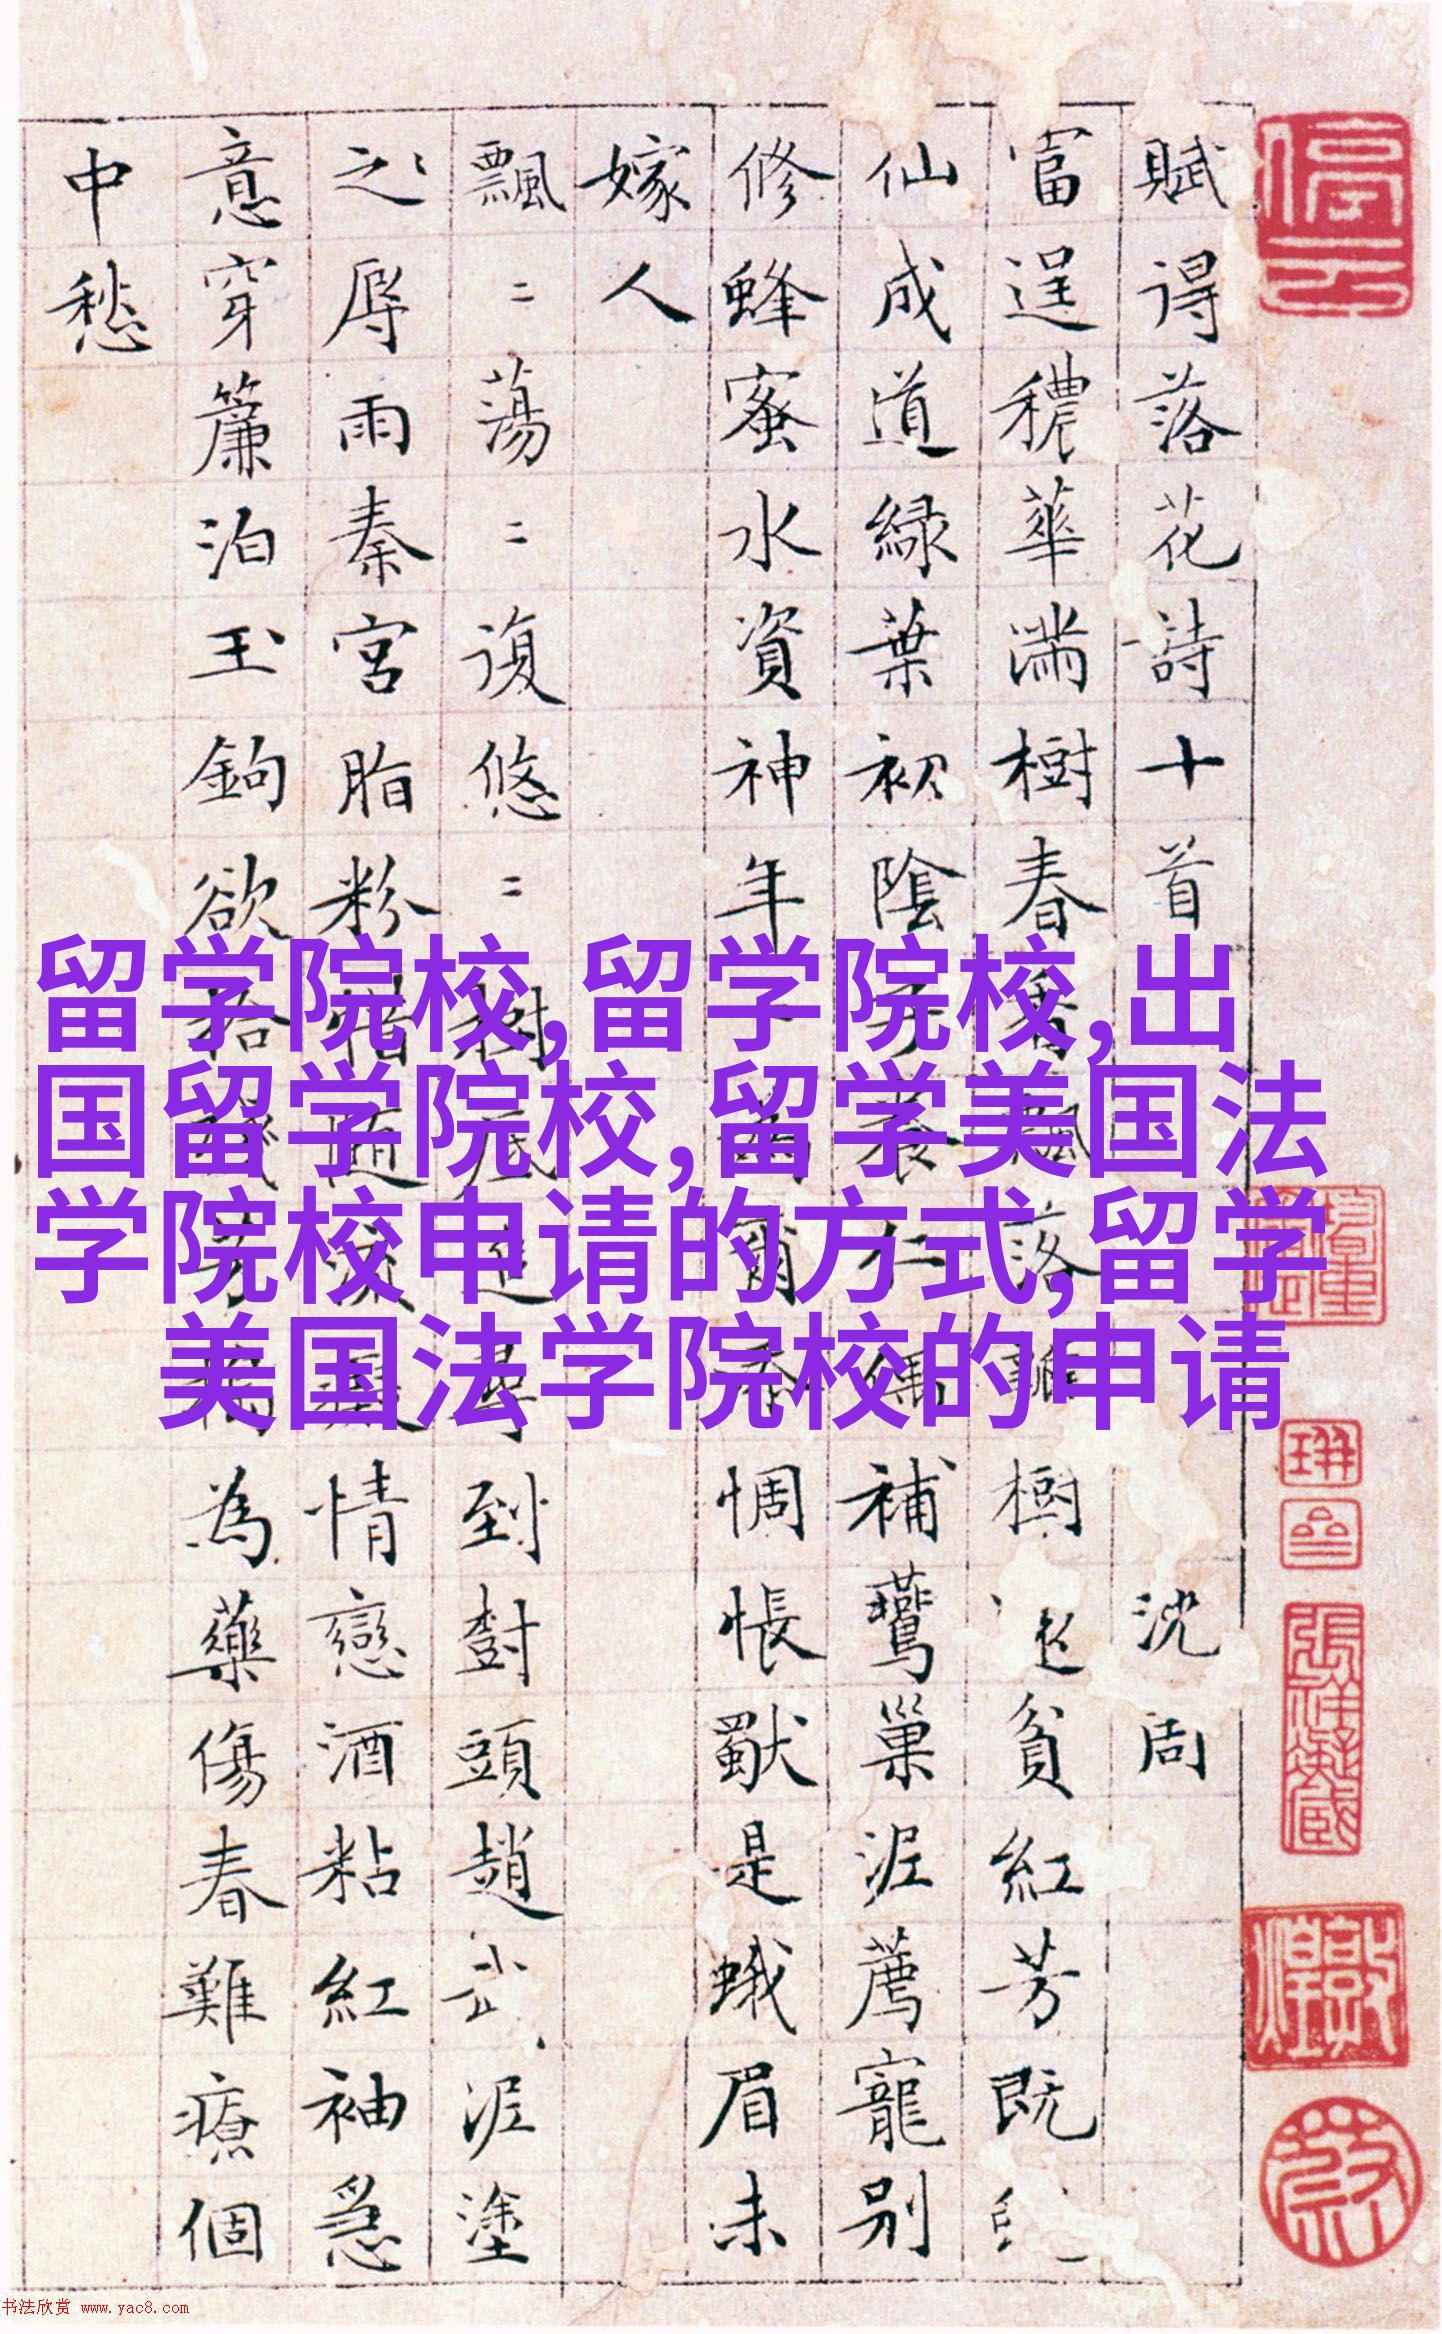 賦得落花詩十首 沈周
富逞穠華滿樹春香飄落瓣樹貧紅芳既
仙成道綠葉初陰子養仁偶補鶯巢泥薦寵別
修蜂蜜水資神年為爾添惆悵獨是蛾眉未
嫁人
飄〻蕩〻復悠〻樹底追尋到樹頭趙武泥塗
之辱雨秦宮脂粉惜隨流癡情戀酒粘紅袖急
意穿簾泊玉鉤欲拾殘芳搗為藥傷春難療個
中愁
留学院校,留学院校,出
国留学院校,留学美国法
学院校申请的方式,留学
美国法学院校的申请
书法欣赏 www.yac8.com